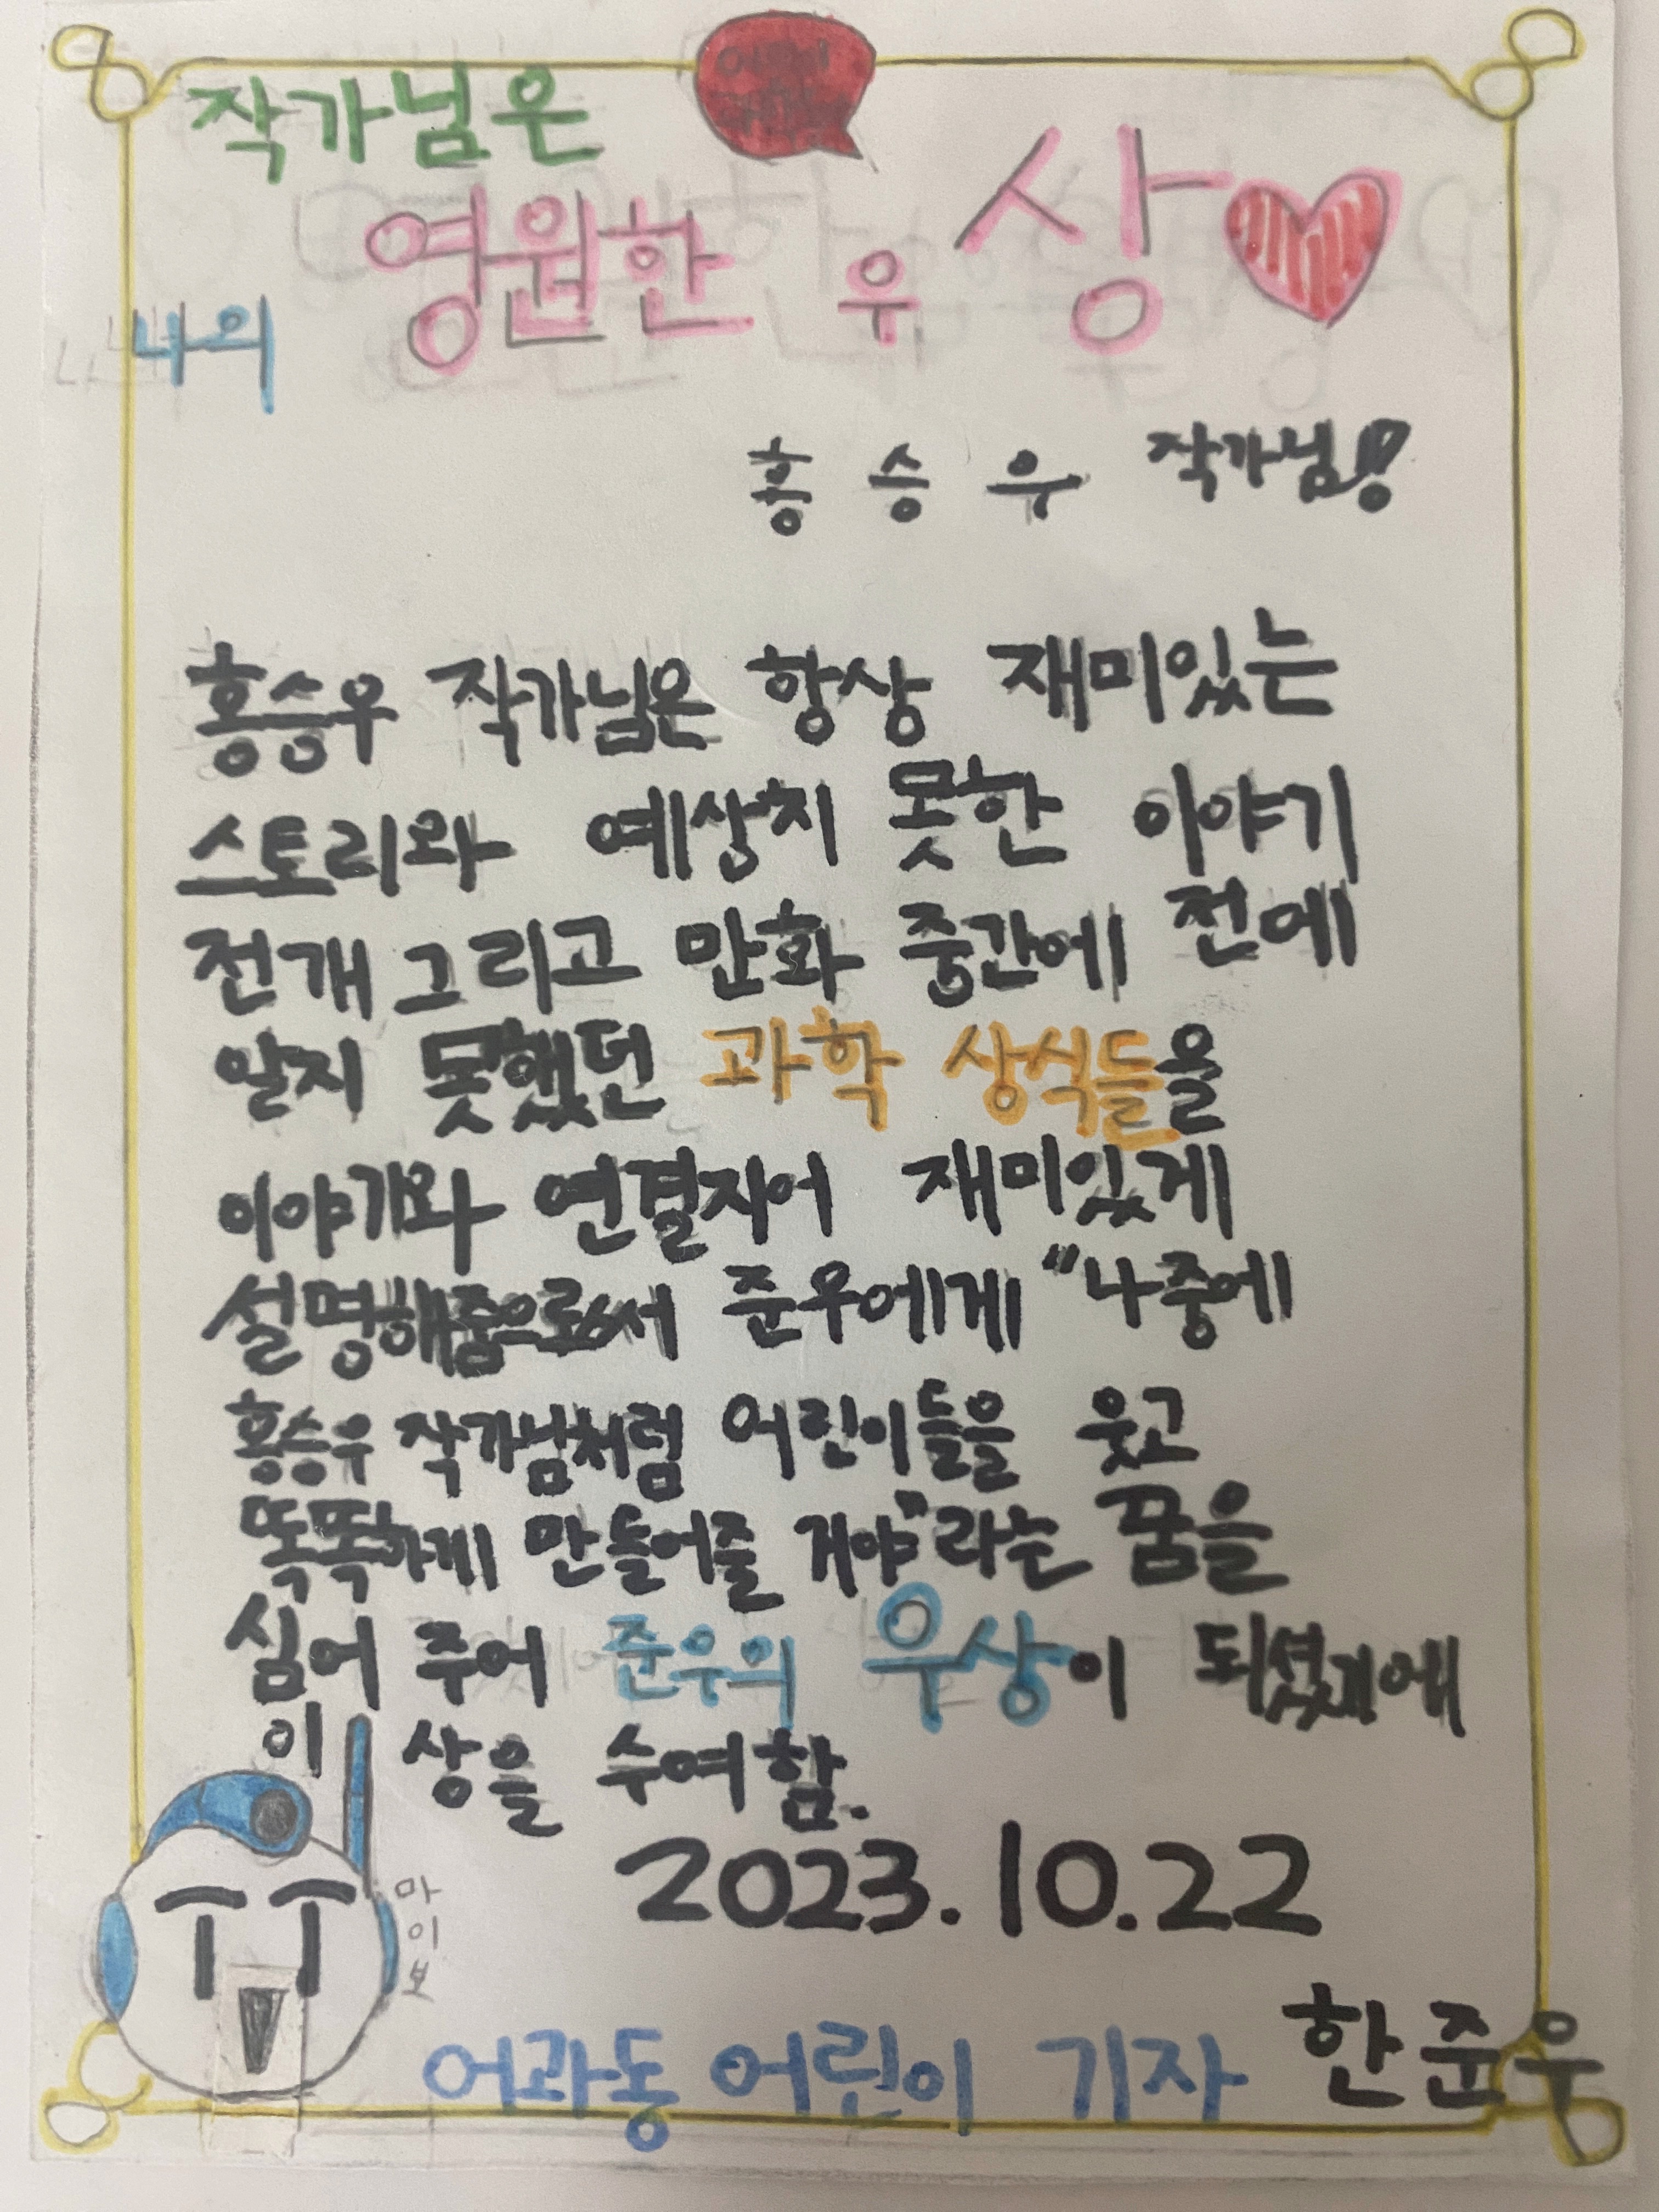 작가님은
나의 영원한 우상
홍승우 작가님!!
홍승우 작가님은 항상 재미있는
스토리와 예상치 못한 이야기
전개 그리고 만화 중간에 전에
알지 못했던 과학 상식들을
이야기와 연결지어 재미있게
설명해줌으로써 준우에게 "나중에
홍승우 작가님처럼 어린이들을 웃고
똑똑하게 만들어줄 거야"라는 꿈을
심어 주어 준우의 우상이 되셨기에
이 상을 수여함.
2023.10.22
마이보
어과동 어린이 기자 한준우